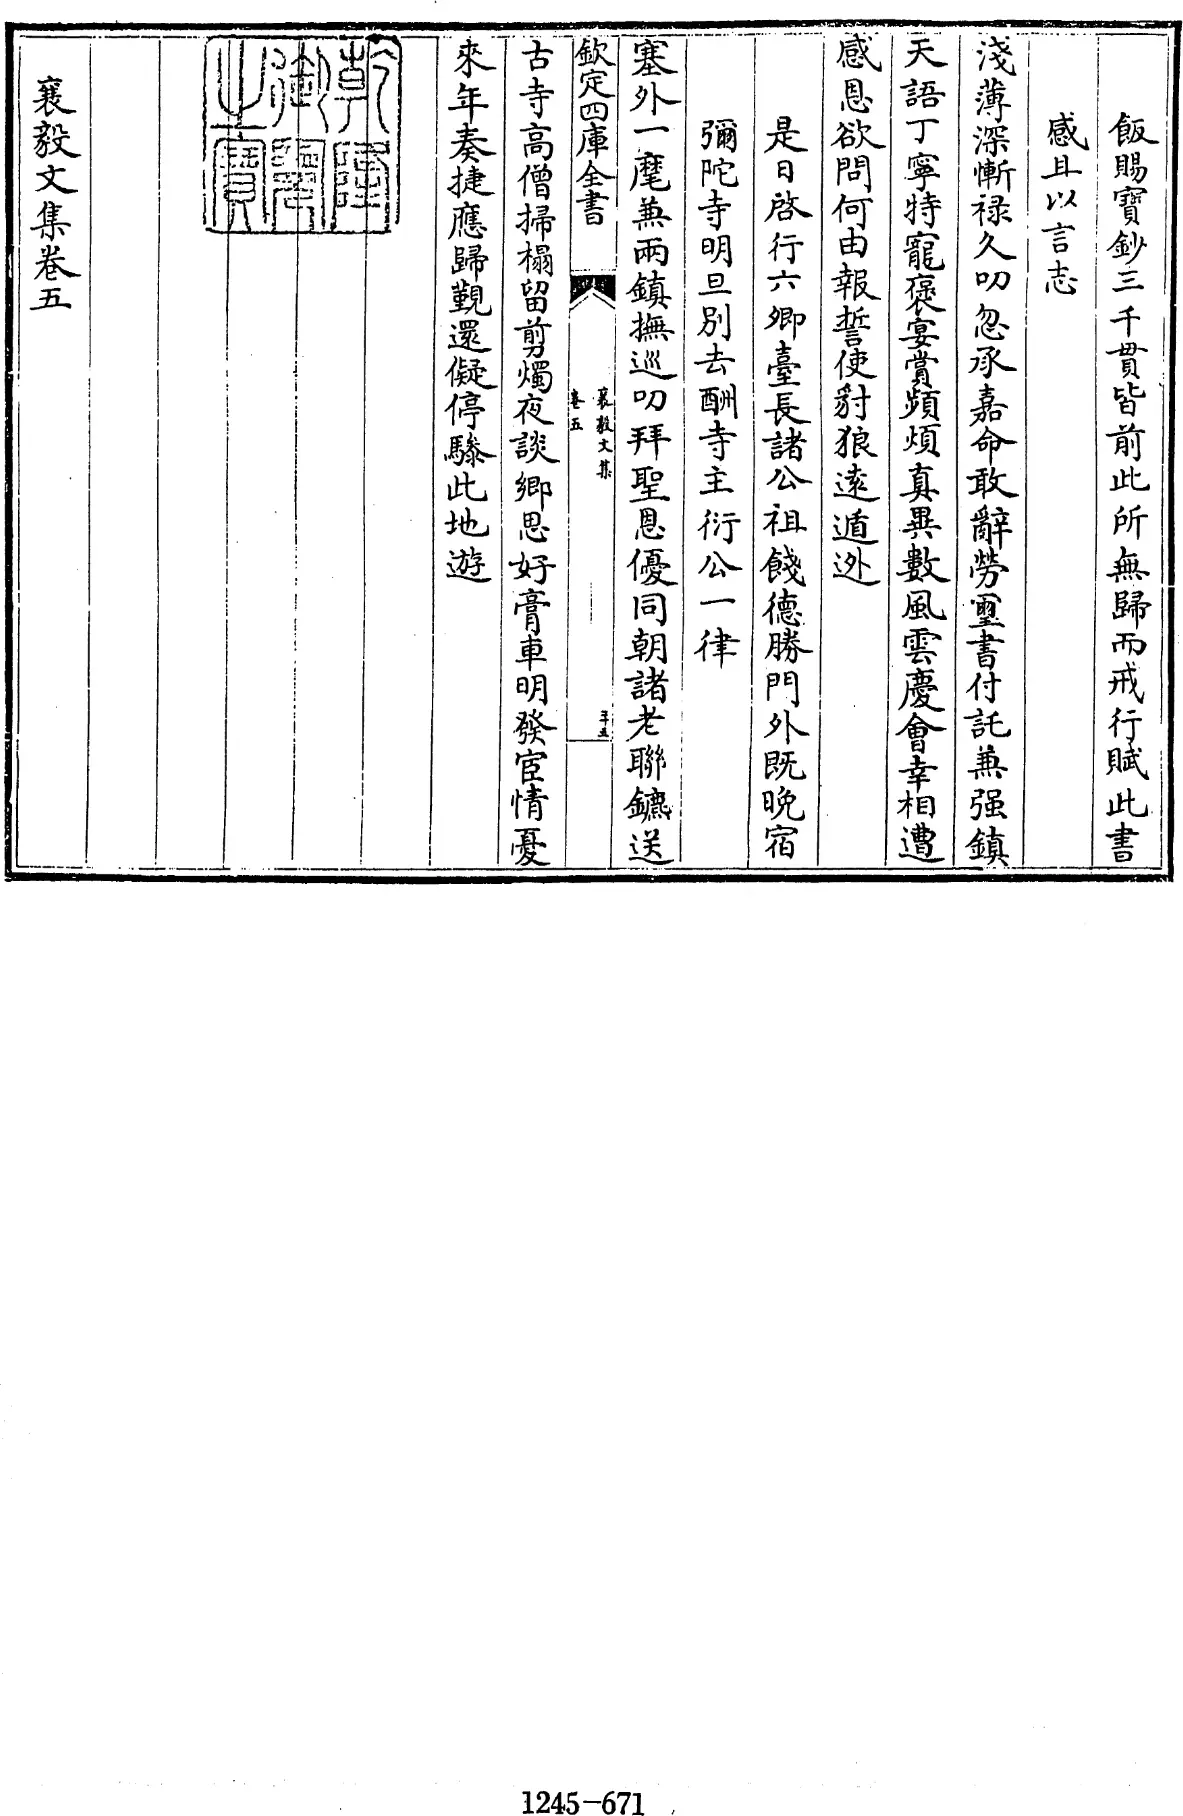 飯賜寳鈔三千貫皆前此所無歸而戒行賦此書
感且以言志
淺薄深慚禄久叨忽承嘉命敢辭勞璽書付託兼强鎮
天語丁寧特寵褒宴賞頻煩真異數風雲慶會幸相遭
感恩欲問何由報誓使豺狼逺遁逃
是日啓行六卿臺長諸公祖餞德勝門外既晚宿
彌陀寺明旦別去酬寺主衍公一律
塞外一麾兼兩鎮撫巡叨拜聖恩優同朝諸老聯鑣送
欽定四庫全書
襄毅文集
卷五
古寺高僧掃榻留剪燭夜談鄉思好膏車明發宦情憂
來年奏捷應歸覲還儗停驂此地遊
乾隆御覽之寶
襄毅文集卷五
1245-671